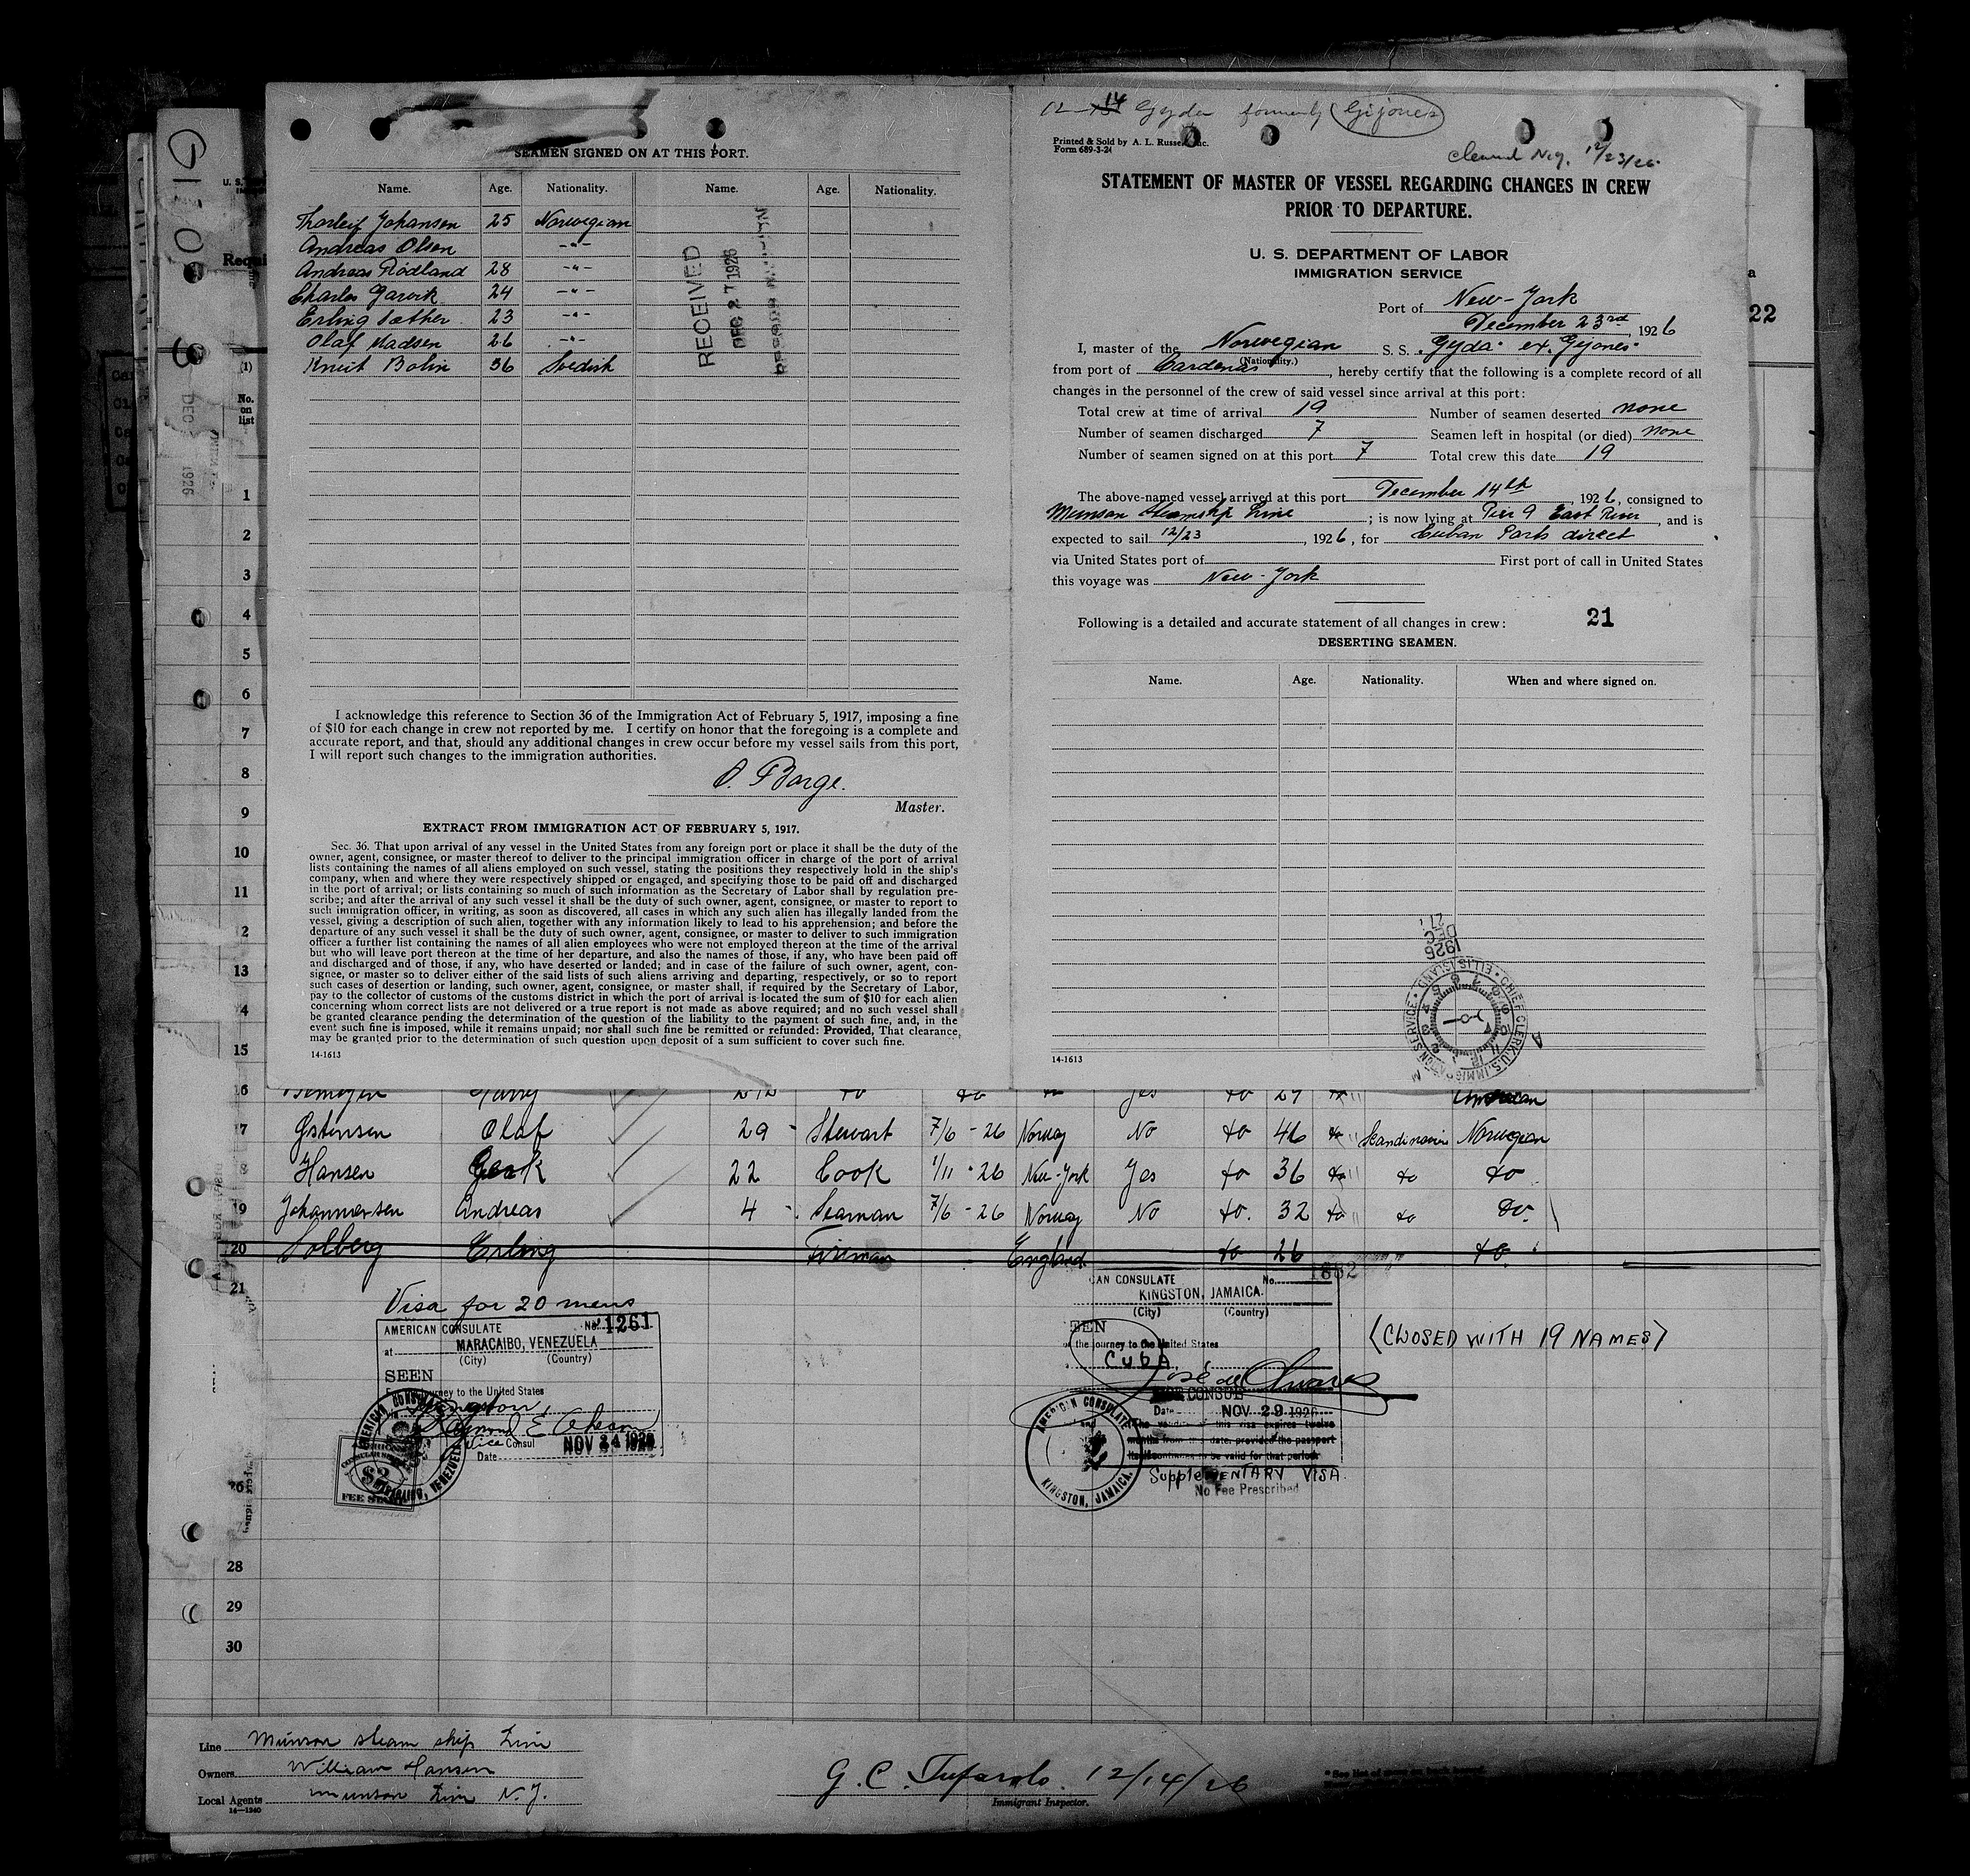 SEAMEN SIGNED ON AT THIS PORT.
Name. Age. Nationality. Name. Age. Nationality.
Thorleif Johansen 25 Norwegian
Andreas Olsen -"-
Andreas Rödland 28 -"-
Charles Garvik 24 -"-
Erling Sæther 23 -"-
Olaf Madsen 26 -"-
Knut Bolin 36 Svedish
RECEIVED
DEC 27 1926
I acknowledge this reference to Section 36 of the Immigration Act of February 5, 1917, imposing a fine
of $10 for each change in crew not reported by me. I certify on honor that the foregoing is a complete and
accurate report, and that, should any additional changes in crew occur before my vessel sails from this port,
I will report such changes to the immigration authorities.
O. Borge.
Master.
EXTRACT FROM IMMIGRATION ACT OF FEBRUARY 5, 1917.
Sec. 36. That upon arrival of any vessel in the United States from any foreign port or place it shall be the duty of the
owner, agent, consignee, or master thereof to deliver to the principal immigration officer in charge of the port of arrival
lists containing the names of all aliens employed on such vessel, stating the positions they respectively hold in the ship's
company, when and where they were respectively shipped or engaged, and specifying those to be paid off and discharged
in the port of arrival; or lists containing so much of such information as the Secretary of Labor shall by regulation pre-
scribe; and after the arrival of any such vessel it shall be the duty of such owner, agent, consignee, or master to report to
such immigration officer, in writing, as soon as discovered, all cases in which any such alien has illegally landed from the
vessel, giving a description of such alien, together with any information likely to lead to his apprehension; and before the
departure of any such vessel it shall be the duty of such owner, agent, consignee, or master to deliver to such immigration
officer a further list containing the names of all alien employees who were not employed thereon at the time of the arrival
but who will leave port thereon at the time of her departure, and also the names of those, if any, who have been paid off
and discharged and of those, if any, who have deserted or landed; and in case of the failure of such owner, agent, con-
signee, or master so to deliver either of the said lists of such aliens arriving and departing, respectively, or so to report
such cases of desertion or landing, such owner, agent, consignee, or master shall, if required by the Secretary of Labor,
pay to the collector of customs of the customs district in which the port of arrival is located the sum of $10 for each alien
concerning whom correct lists are not delivered or a true report is not made as above required; and no such vessel shall
be granted clearance pending the determination of the question of the liability to the payment of such fine, and, in the
event such fine is imposed, while it remains unpaid; nor shall such fine be remitted or refunded: Provided, That clearance,
may be granted prior to the determination of such question upon deposit of a sum sufficient to cover such fine.
14-1613
12-14 Gyda formerly Gijones
Printed & Sold by A. L. Russell, Inc.
Form 689-3-24
Cleared N.Y. 12/23/26
STATEMENT OF MASTER OF VESSEL REGARDING CHANGES IN CREW
PRIOR TO DEPARTURE.
U. S. DEPARTMENT OF LABOR
IMMIGRATION SERVICE
Port of New-York
December 23rd, 1926
I, master of the Norwegian S. S. "Gyda" ex. Gijones"
(Nationality.)
from port of Cardenas, hereby certify that the following is a complete record of all
changes in the personnel of the crew of said vessel since arrival at this port:
Total crew at time of arrival 19 Number of seamen deserted none
Number of seamen discharged 7 Seamen left in hospital (or died) none
Number of seamen signed on at this port 7 Total crew this date 19
The above-named vessel arrived at this port December 14th, 1926, consigned to
Munson Steamship Line; is now lying at Pier 9 East River, and is
expected to sail 12/23, 1926, for Cuban Ports direct
via United States port of First port of call in United States
this voyage was New-York
Following is a detailed and accurate statement of all changes in crew: 21
DESERTING SEAMEN.
Name. Age. Nationality. When and where signed on.
1926
DEC 27
CHIEF CLERK, U.S. IMMIGRATION SERVICE · ELLIS ISLAND
14-1613
22
No.
on
list
1
2
3
4
5
6
7
8
9
10
11
2
13
4
15
16 Harry Yes do 27 American
17 Gstensen Olaf 29 - Stewart 7/6 - 26 Norway No do 46 do Scandinavia Norwegian
Hansen 22 Cook 1/11 - 26 New-York Yes do 36 do do do
19 Johannessen Andreas 4 - Seaman 7/6 - 26 Norway No do. 32 do do do.
20 Solberg Erling Fireman England do 26 do
21
Visa for 20 mens
AMERICAN CONSULATE No. 1261
at MARACAIBO, VENEZUELA
(City) (Country)
SEEN
For the journey to the United States
Kingston,
Vice Consul NOV 24 1926
Date
FEE STAMP
CAN CONSULATE No. 1882
KINGSTON, JAMAICA.
(City) (Country)
SEEN
the journey to the United States
CUBA
José de Olivares
CONSUL
Date NOV 29 1926
The validity of this visa expires twelve
months from this date, provided the passport
itself continues to be valid for that period
SUPPLEMENTARY VISA.
No Fee Prescribed
AMERICAN CONSULATE
KINGSTON, JAMAICA.
(CLOSED WITH 19 NAMES)
26
28
29
30
Line Munson steam ship Line
Owners William Hansen
Local Agents Munson Line N.Y.
14-1240
G. C. Tufarolo. 12/14/26
Immigrant Inspector.